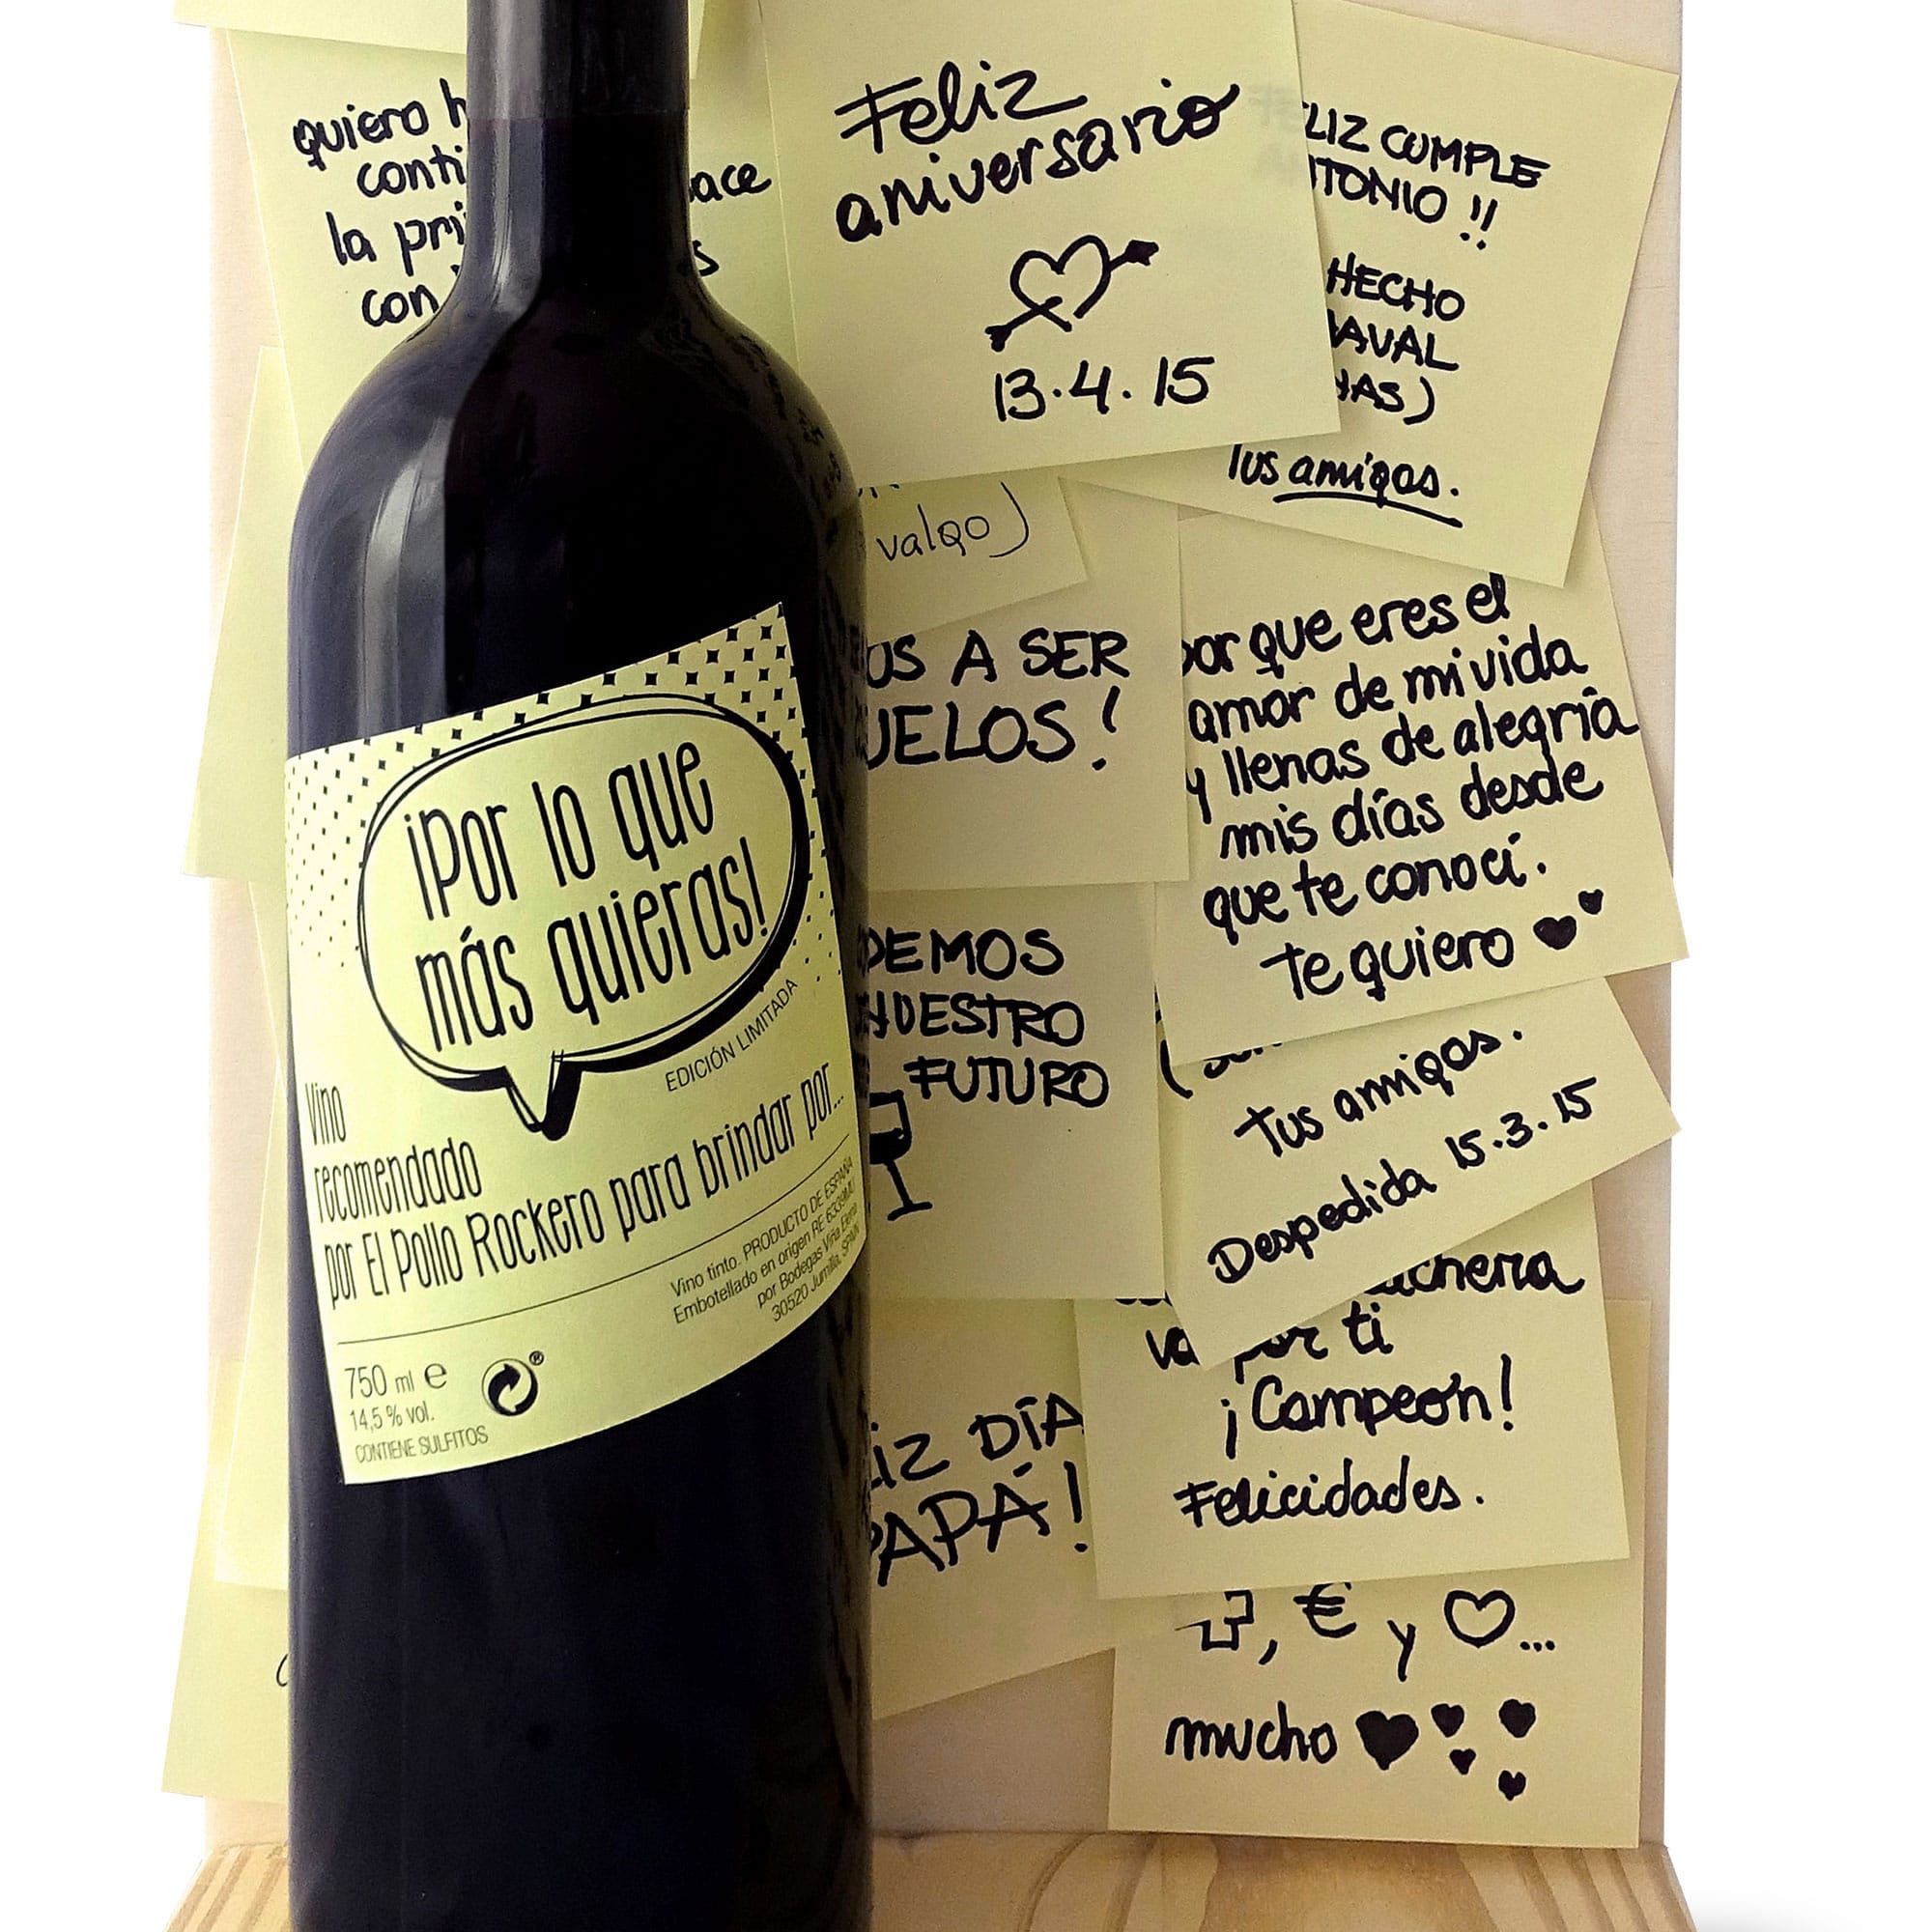 quiero
la
con
Feliz
aniversario
13.4.15
CUMPLE
!!
HECHO
Tus amigos.
valgo)
A SER
!
por que eres el
amor de mi vida
y llenas de alegría
mis días desde
que te conocí.
te quiero
NUESTRO
FUTURO
Tus amigos.
Despedida 15.3.15
por ti
¡Campeón!
Felicidades.
DÍA
PAPÁ!
, € y ...
mucho
¡Por lo que
más quieras!
EDICIÓN LIMITADA
Vino
recomendado
por El Pollo Rockero para brindar por...
Vino tinto. PRODUCTO DE ESPAÑA
Embotellado en origen RE 6339MU
por Bodegas Viña Elena
30520 Jumilla, SPAIN
750 ml e
14,5 % vol.
CONTIENE SULFITOS